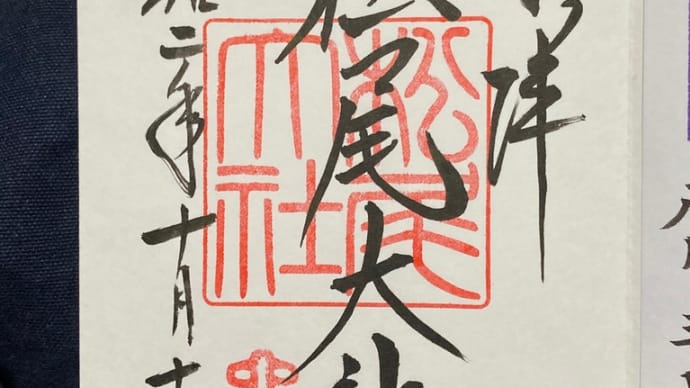 拝
松尾大社
和二年十月十
松尾大社